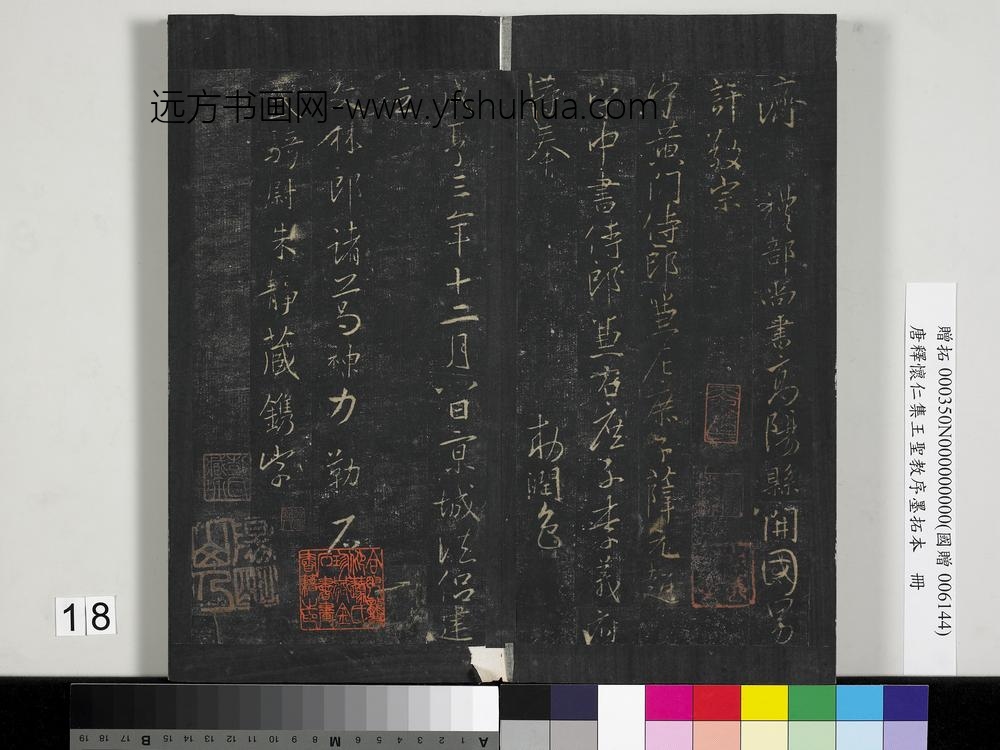 濟 禮部尚書高陽縣開國男
許敬宗
守黃門侍郎兼左庶子薛元超
守中書侍郎兼右庶子李義府
等奉 勅潤色
咸亨三年十二月八日京城法侶建
立
文林郎諸葛神力 勒 石
武騎尉朱靜藏鐫字
远方书画网-www.yfshuhua.com
贈拓 000350N000000000(國贈 006144)
唐釋懷仁集王聖教序墨拓本 冊
18
A 1 2 3 4 5 6 M 8 9 10 11 12 13 14 15 B 17 18 19